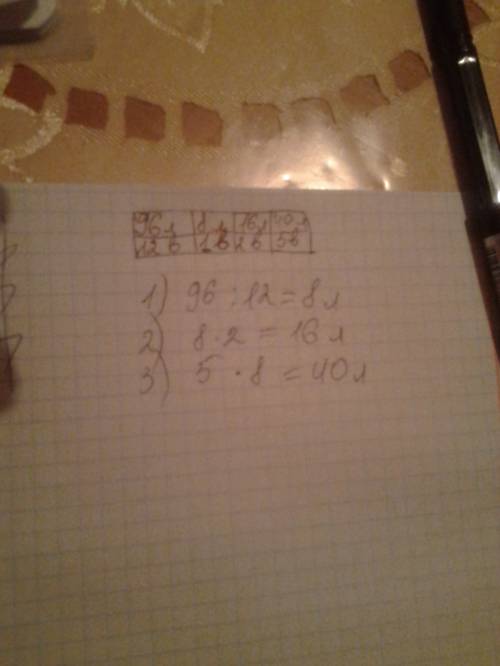 96л 8л 16л 40л
12 б 1 б 2 б 5б
1) 96:12=8л
2) 8·2=16л
3) 5·8=40л